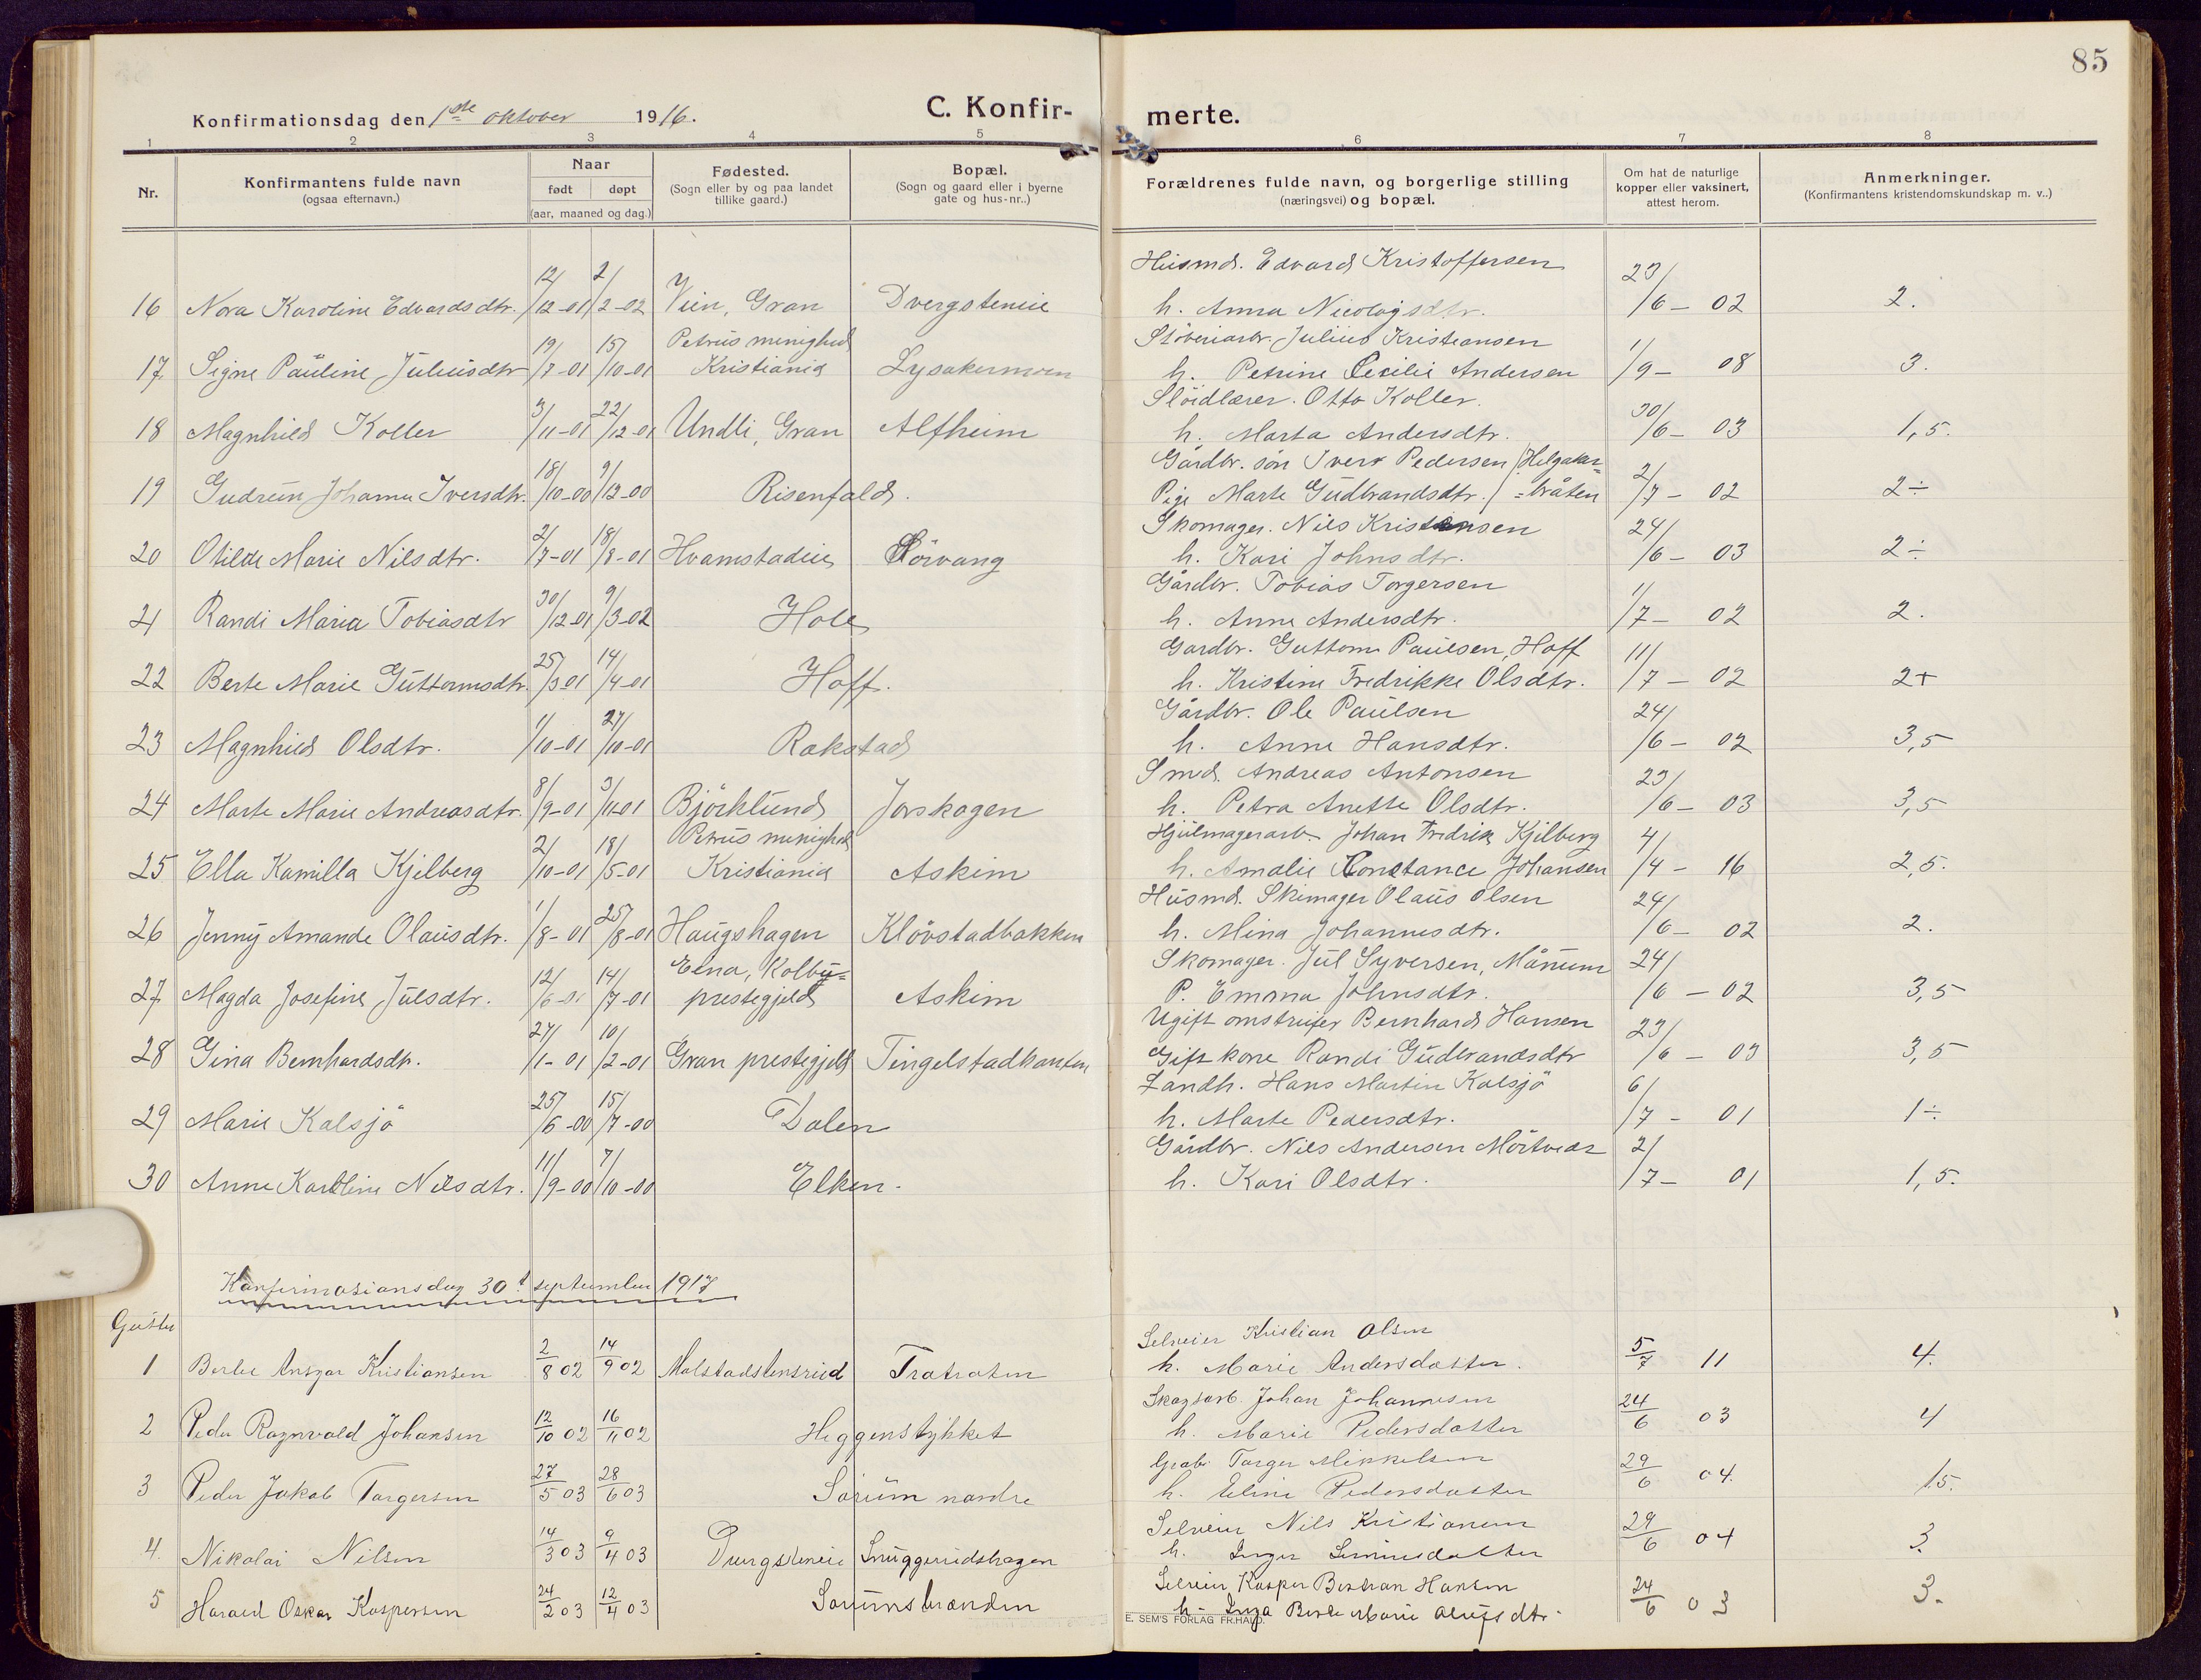 85
Konfirmationsdag den 1ste oktober 1916.
C. Konfirmerte.
1 2 3 4 5 6 7 8
Nr.
Konfirmantens fulde navn
(ogsaa efternavn.)
Naar
født døpt
(aar, maaned og dag.)
Fødested.
(Sogn eller by og paa landet
tillike gaard.)
Bopæl.
(Sogn og gaard eller i byerne
gate og hus-nr..)
Forældrenes fulde navn, og borgerlige stilling
(næringsvei) og bopæl.
Om hat de naturlige
kopper eller vaksinert,
attest herom.
Anmerkninger.
(Konfirmantens kristendomskundskap m. v..)
Husmd. Edvard Kristoffersen
16 Nora Karoline Edvardsdtr. 12/12-01 2/2-02 Vien, Gran Dvergsteneie h. Anna Nicolaisdtr. 23/6-02 2.
Petrus menighed Støveriarb. Julius Kristiansen
17 Signe Pauline Juliusdtr 19/7-01 15/10-01 Kristiania Lysakermoen h. Petrine Cecilie Andersen 1/9-08 3.
Slöidlærer. Otto Koller.
18 Magnhild Koller 3/11-01 22/12-01 Undli, Gran Alfheim h. Marta Andersdtr. 30/6-03 1,5.
Gårdbr. søn Iver Pedersen / Helgaker=
19 Gudrun Johanne Iversdtr. 18/10-00 9/12-00 Risenfald. Pige Marte Gudbrandsdtr. / =bråten 2/7-02 2÷
Skomager. Nils Kristensen
20 Otilde Marie Nilsdtr. 2/7-01 18/8-01 Hvamstadeie Sörvang h. Kari Johnsdtr. 24/6-03 2÷
Gårdbr. Tobias Torgersen
21 Randi Maria Tobiasdtr 30/12-01 9/3-02 Hole h. Anne Andersdtr. 1/7-02 2.
Gardbr. Guttorm Paulsen, Hoff
22 Berte Marie Guttormsdtr. 25/3-01 14/4-01 Hoff. h. Kristine Fredrikke Olsdtr. 11/7-02 2+
Gårdbr. Ole Paulsen
23 Magnhild Olsdtr. 1/10-01 27/10-01 Rakstad h. Anne Hansdtr. 24/6-02 3,5
Smed. Andreas Antonsen
24 Marte Marie Andreasdtr. 8/9-01 3/11-01 Björklund Jorskogen h. Petra Anette Olsdtr. 23/6-03 3,5
Petrus menighed Hjulmagerarb. Johan Fredrik Kjelberg
25 Ella Kamilla Kjelberg 2/10-01 18/5-01 Kristiania Askim h. Amalie Konstance Johansen 4/4-16 2,5.
Husmd. Skomager Olaus Olsen
26 Jenny Amande Olausdtr. 1/8-01 25/8-01 Haugshagen Klövstadbakken h. Mina Johannesdtr. 24/6-02 2.
Eina, Kolbu= Skomager. Jul Syversen, Månum
27 Magda Josefine Julsdtr. 12/6-01 14/7-01 prestegjeld Askim P. Emma Johnsdtr. 24/6-02 3,5
Ugift omstreifer Bernhard Hansen
28 Gina Bernhardsdtr. 27/1-01 10/2-01 Gran prestegjeld Tingelstadkanten Gift kone Randi Gudbrandsdtr 23/6-03 3,5
Landh. Hans Martin Kalsjö
29 Marie Kalsjö 25/6-00 15/7-00 Dalen h. Marte Pedersdtr. 6/7-01 1÷
Gårdbr. Nils Andersen Mörtvedt
30 Anne Karoline Nilsdtr. 11/9-00 7/10-00 Elken. h. Kari Olsdtr. 2/7-01 1,5.
Konfirmasionsdag 30t september 1917
Gutter
Selveier Kristian Olsen
1 Berler Ansgar Kristiansen 2/8 02 14/9 02 Molstadstensrud h. Marie Andersdatter. 5/7 11 4.
Skogsarb. Johan Johannesen
2 Peder Ragnvald Johansen 12/10 02 16/11 02 Heggenstykket h. Marie Pedersdatter 24/6 03 4
Torger Mikkelsen
3 Peder Jakob Torgersen 27/5 03 28/6 03 Sörum nordre h. Eline Pedersdatter 29/6 04. 1,5.
Selveier Nils Kristiansen
4. Nikolai Nilsen 14/3 03 9/4 03 Dvergsteneie Snuggerudshagen h. Inger 29/6 04 3.
Selveier Kasper Hansen
5 Harald Oskar Kaspersen 24/2 03 12/4 03 Sörumsbraenden h. Inga Berte Marie Olufsdtr. 24/6 03 3.
E. SEM'S FORLAG FR.HALD.